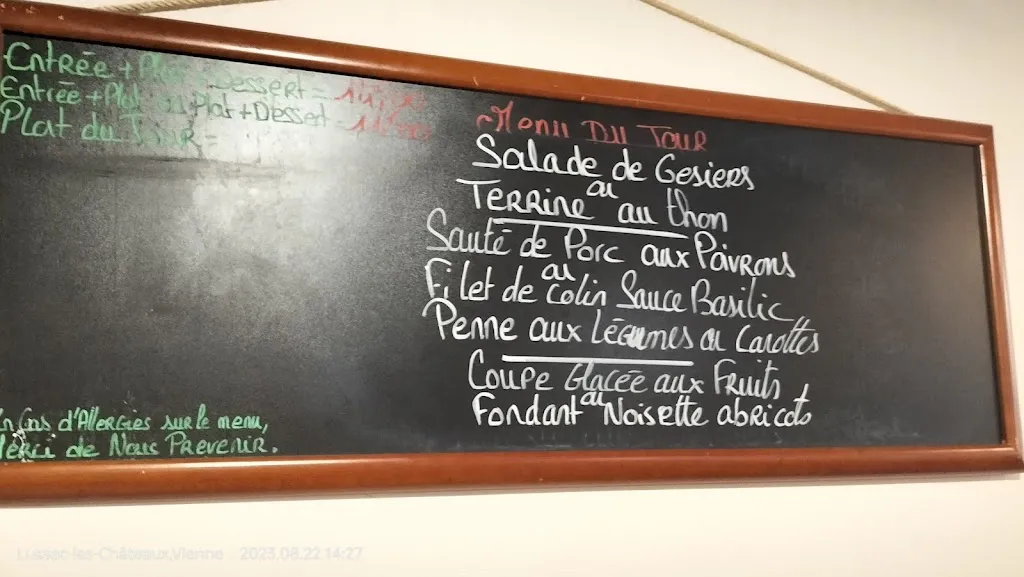 Entrée + Plat + Dessert =
Entrée + Plat ou Plat + Dessert =
Plat du Jour =
Menu Du Jour
Salade de Gesiers
ou
Terrine au thon
Sauté de Porc aux Poivrons
ou
Filet de colin Sauce Basilic
Penne aux Légumes ou Carottes
Coupe Glacée aux Fruits
ou
Fondant Noisette + abricots
En Cas d'Allergies sur le menu,
Merci de Nous Prevenir.
Lussac-les-Châteaux,Vienne 2023.08.22 14:27